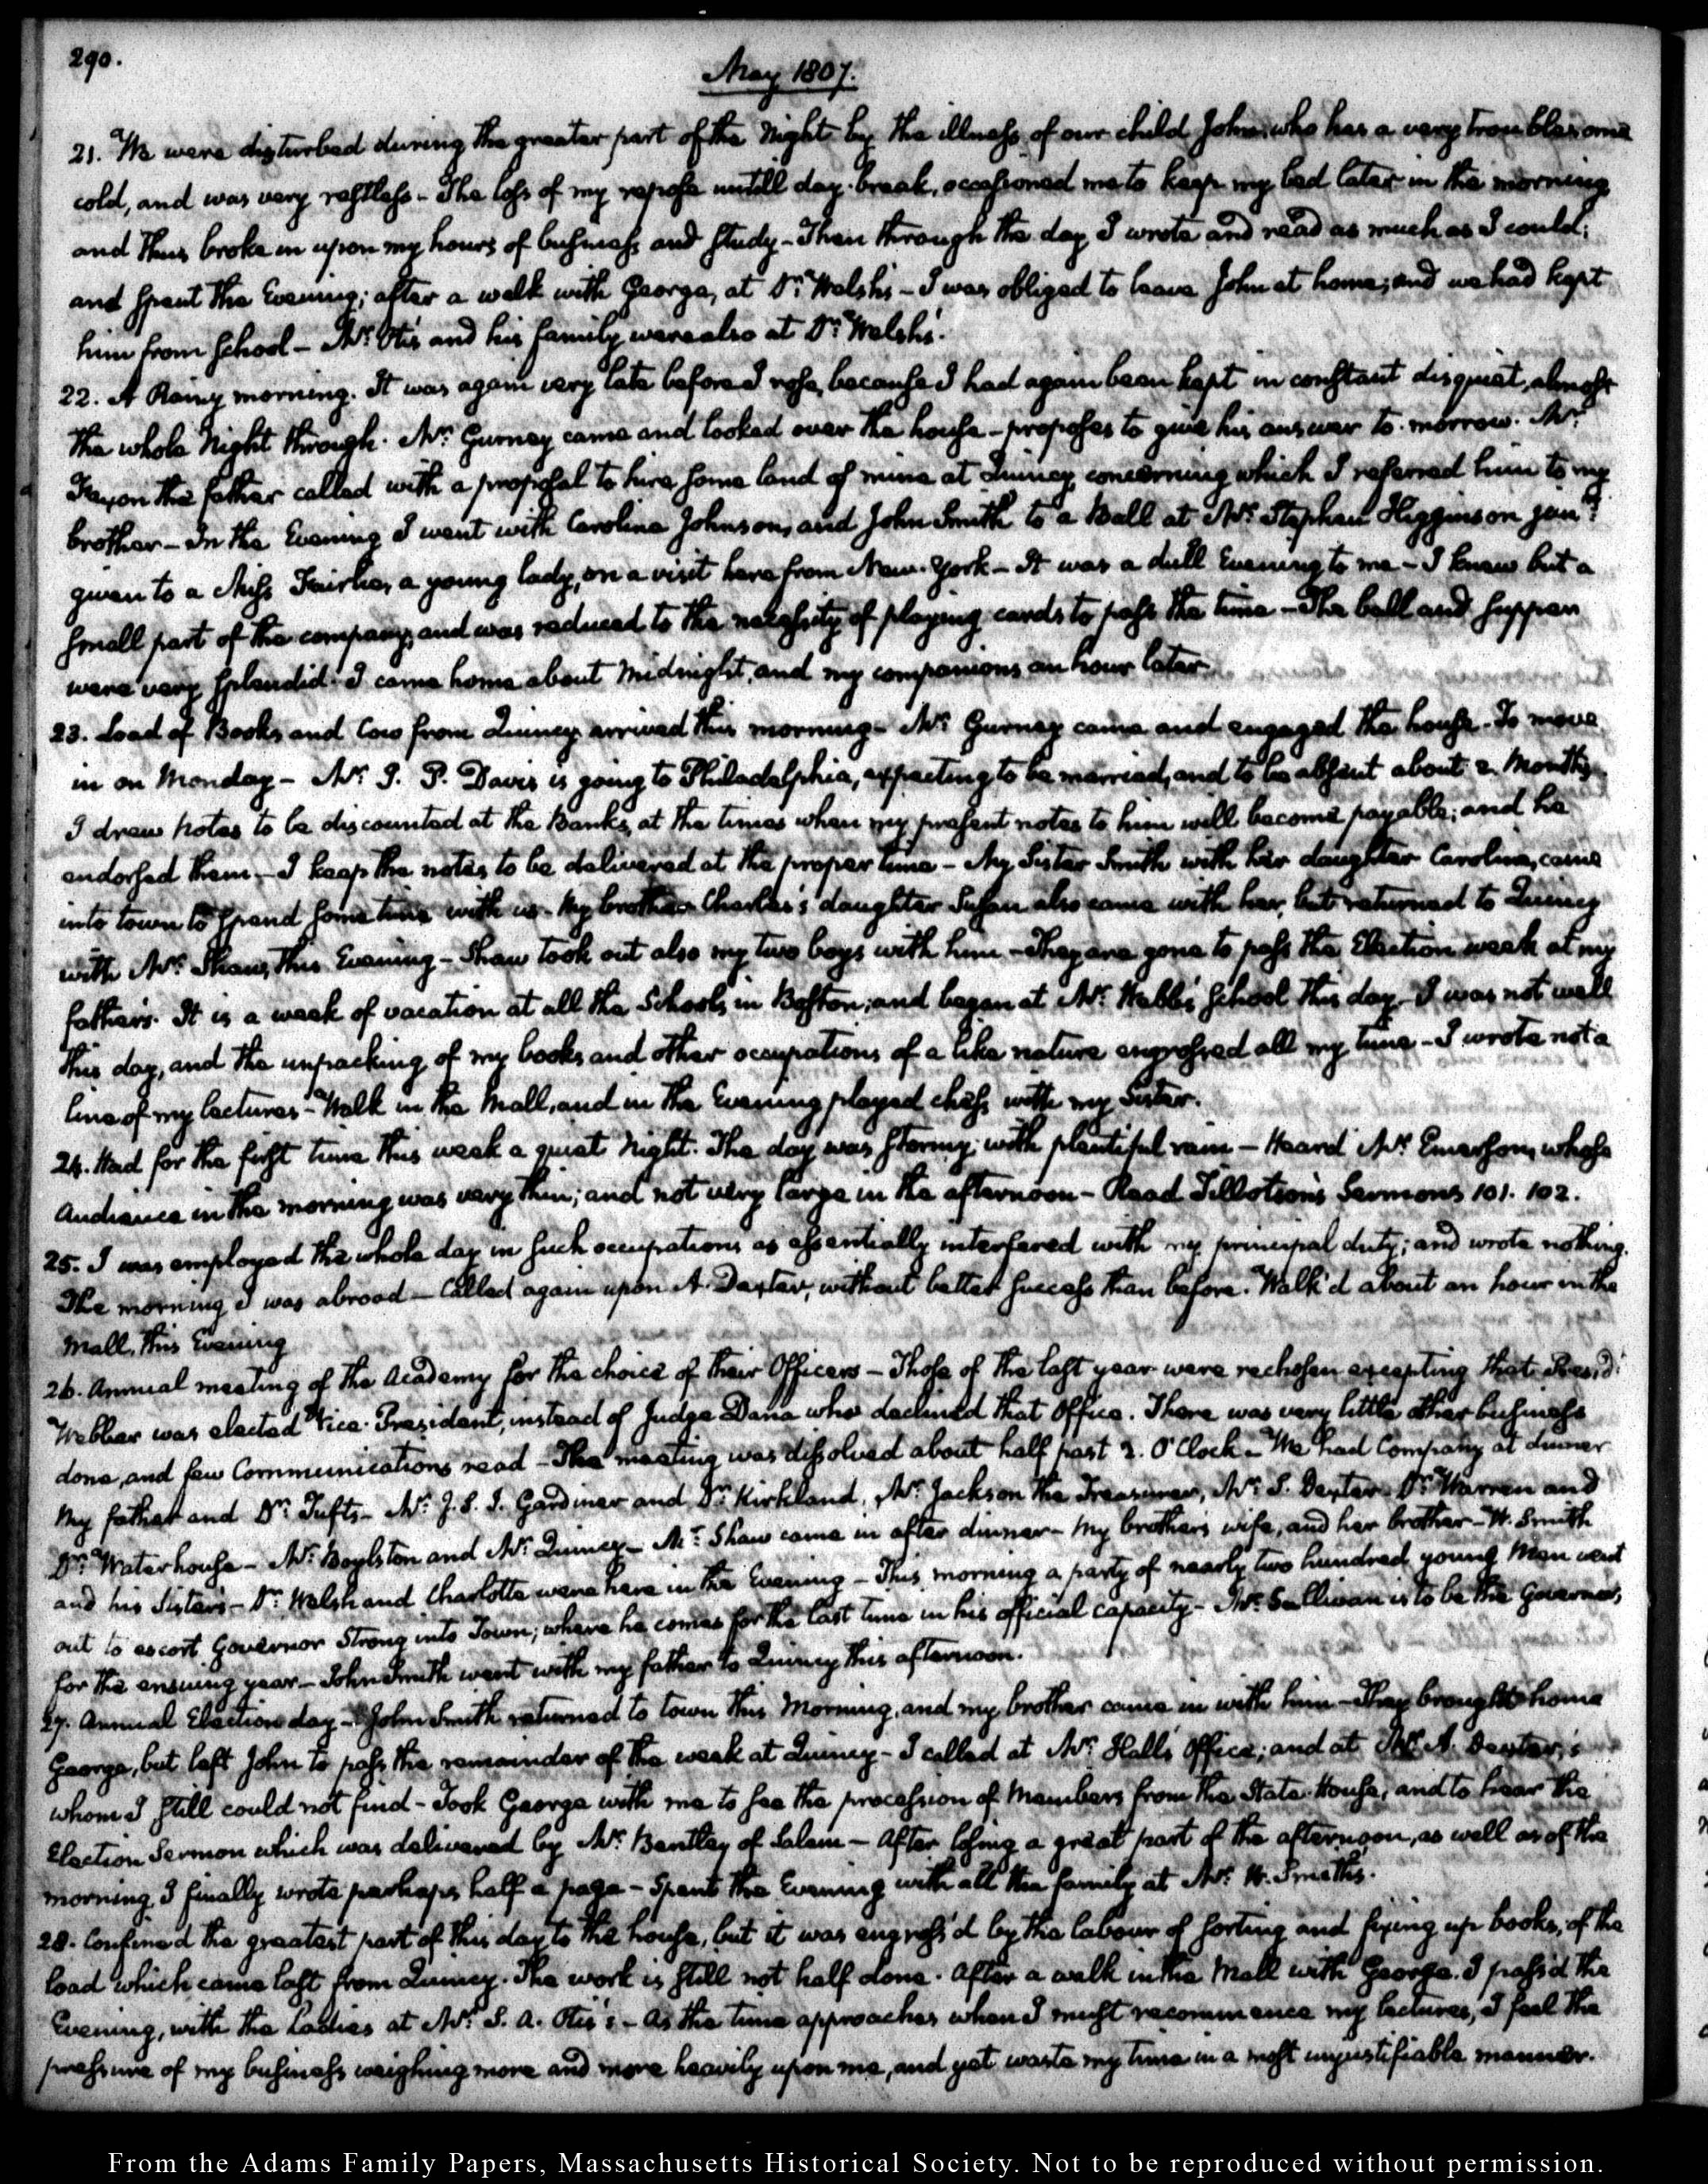 290.
May 1807.
21. We were disturbed during the greater part of the Night by the illness of our child John, who has a very troublesome
cold, and was very restless - The loss of my repose untill day-break, occasioned me to keep my bed later in the morning
and thus broke in upon my hours of business and study - Then through the day I wrote and read as much as I could;
and spent the Evening; after a walk with George, at Dr. Welsh's - I was obliged to leave John at home; and we had kept
him from school - Mr. Otis and his family were also at Dr. Welsh's.
22. A Rainy morning. It was again very late before I rose, because I had again been kept in constant disquiet, almost
the whole Night through. Mr. Gurney came and looked over the house - proposes to give his answer to-morrow. Mr.
the father called with a proposal to hire some land of mine at Quincy, concerning which I referred him to my
brother - In the Evening I went with Caroline Johnson, and John Smith to a Ball at Mr. Stephen Higginson junr.
given to a Miss Fairlie, a young lady, on a visit here from New-York - It was a dull Evening to me - I knew but a
small part of the company, and was reduced to the necessity of playing cards to pass the time - The ball and supper
were very splendid. I came home about midnight, and my companions an hour later.
23. Load of Books and Cow from Quincy arrived this morning - Mr. Gurney came and engaged the house. To move
in on Monday - Mr. I. P. Davis is going to Philadelphia, expecting to be married, and to be absent about 2. Months.
I drew notes to be discounted at the Banks, at the times when my present notes to him will become payable; and he
endorsed them - I keep the notes to be delivered at the proper time - My Sister Smith with her daughter Caroline, came
into town to spend some time with us. My brother Charles's daughter Susan also came with her, but returned to Quincy
with Mr. Shaw, this Evening - Shaw took out also my two boys with him - They are gone to pass the Election week at my
father's. It is a week of vacation at all the Schools in Boston; and began at Mr. Webb's school this day. I was not well
this day, and the unpacking of my books and other occupations of a like nature engrossed all my time - I wrote not a
line of my lectures - Walk in the Mall, and in the Evening played chess with my Sister.
24. Had for the first time this week a quiet Night. The day was stormy, with plentiful rain - Heard Mr. Emerson, whose
Audience in the morning was very thin; and not very large in the afternoon - Read Tillotson's Sermons 101. 102.
25. I was employed the whole day in such occupations as essentially interfered with my principal duty; and wrote nothing.
The morning I was abroad - Called again upon A. Dexter, without better success than before. Walk'd about an hour in the
Mall, this Evening
26. Annual meeting of the Academy for the choice of their Officers - Those of the last year were rechosen excepting that Presidt.
Webber was elected Vice-President, instead of Judge Dana who declined that Office. There was very little other business
done, and few Communications read - The meeting was dissolved about half past 2. O'Clock - We had Company at dinner
My father and Dr. Tufts - Mr. J. S. J. Gardiner and Dr. Kirkland, Mr. Jackson the Treasurer, Mr. S. Dexter. Dr. Warren and
Dr. Waterhouse - Mr. Boylston and Mr. Quincy - Mr. Shaw came in after dinner - My brother's wife, and her brother - W. Smith
and his Sisters - Dr. Welsh and Charlotte were here in the Evening - This morning a party of nearly two hundred young Men went
out to escort Governor Strong into Town; where he comes for the last time in his official capacity - Mr. Sullivan is to be the Governor,
for the ensuing year - John Smith went with my father to Quincy this afternoon.
27. Annual Election day - John Smith returned to town this Morning, and my brother came in with him - They brought home
George, but left John to pass the remainder of the week at Quincy - I called at Mr. Hall's Office; and at Mr. A. Dexter's
whom I still could not find - Took George with me to see the procession of Members from the State-House, and to hear the
Election Sermon which was delivered by Mr. Bentley of Salem - After losing a great part of the afternoon, as well as of the
morning I finally wrote perhaps half a page - Spent the Evening with all the family at Mr. W. Smith's.
28. Confined the greatest part of this day to the house, but it was engross'd by the labour of sorting and fixing up books, of the
load which came last from Quincy. The work is still not half done. After a walk in the Mall with George. I pass'd the
Evening, with the Ladies at Mr. S. A. Otis's - As the time approaches when I must recommence my lectures, I feel the
pressure of my business weighing more and more heavily upon me, and yet waste my time in a most unjustifiable manner.
From the Adams Family Papers, Massachusetts Historical Society. Not to be reproduced without permission.